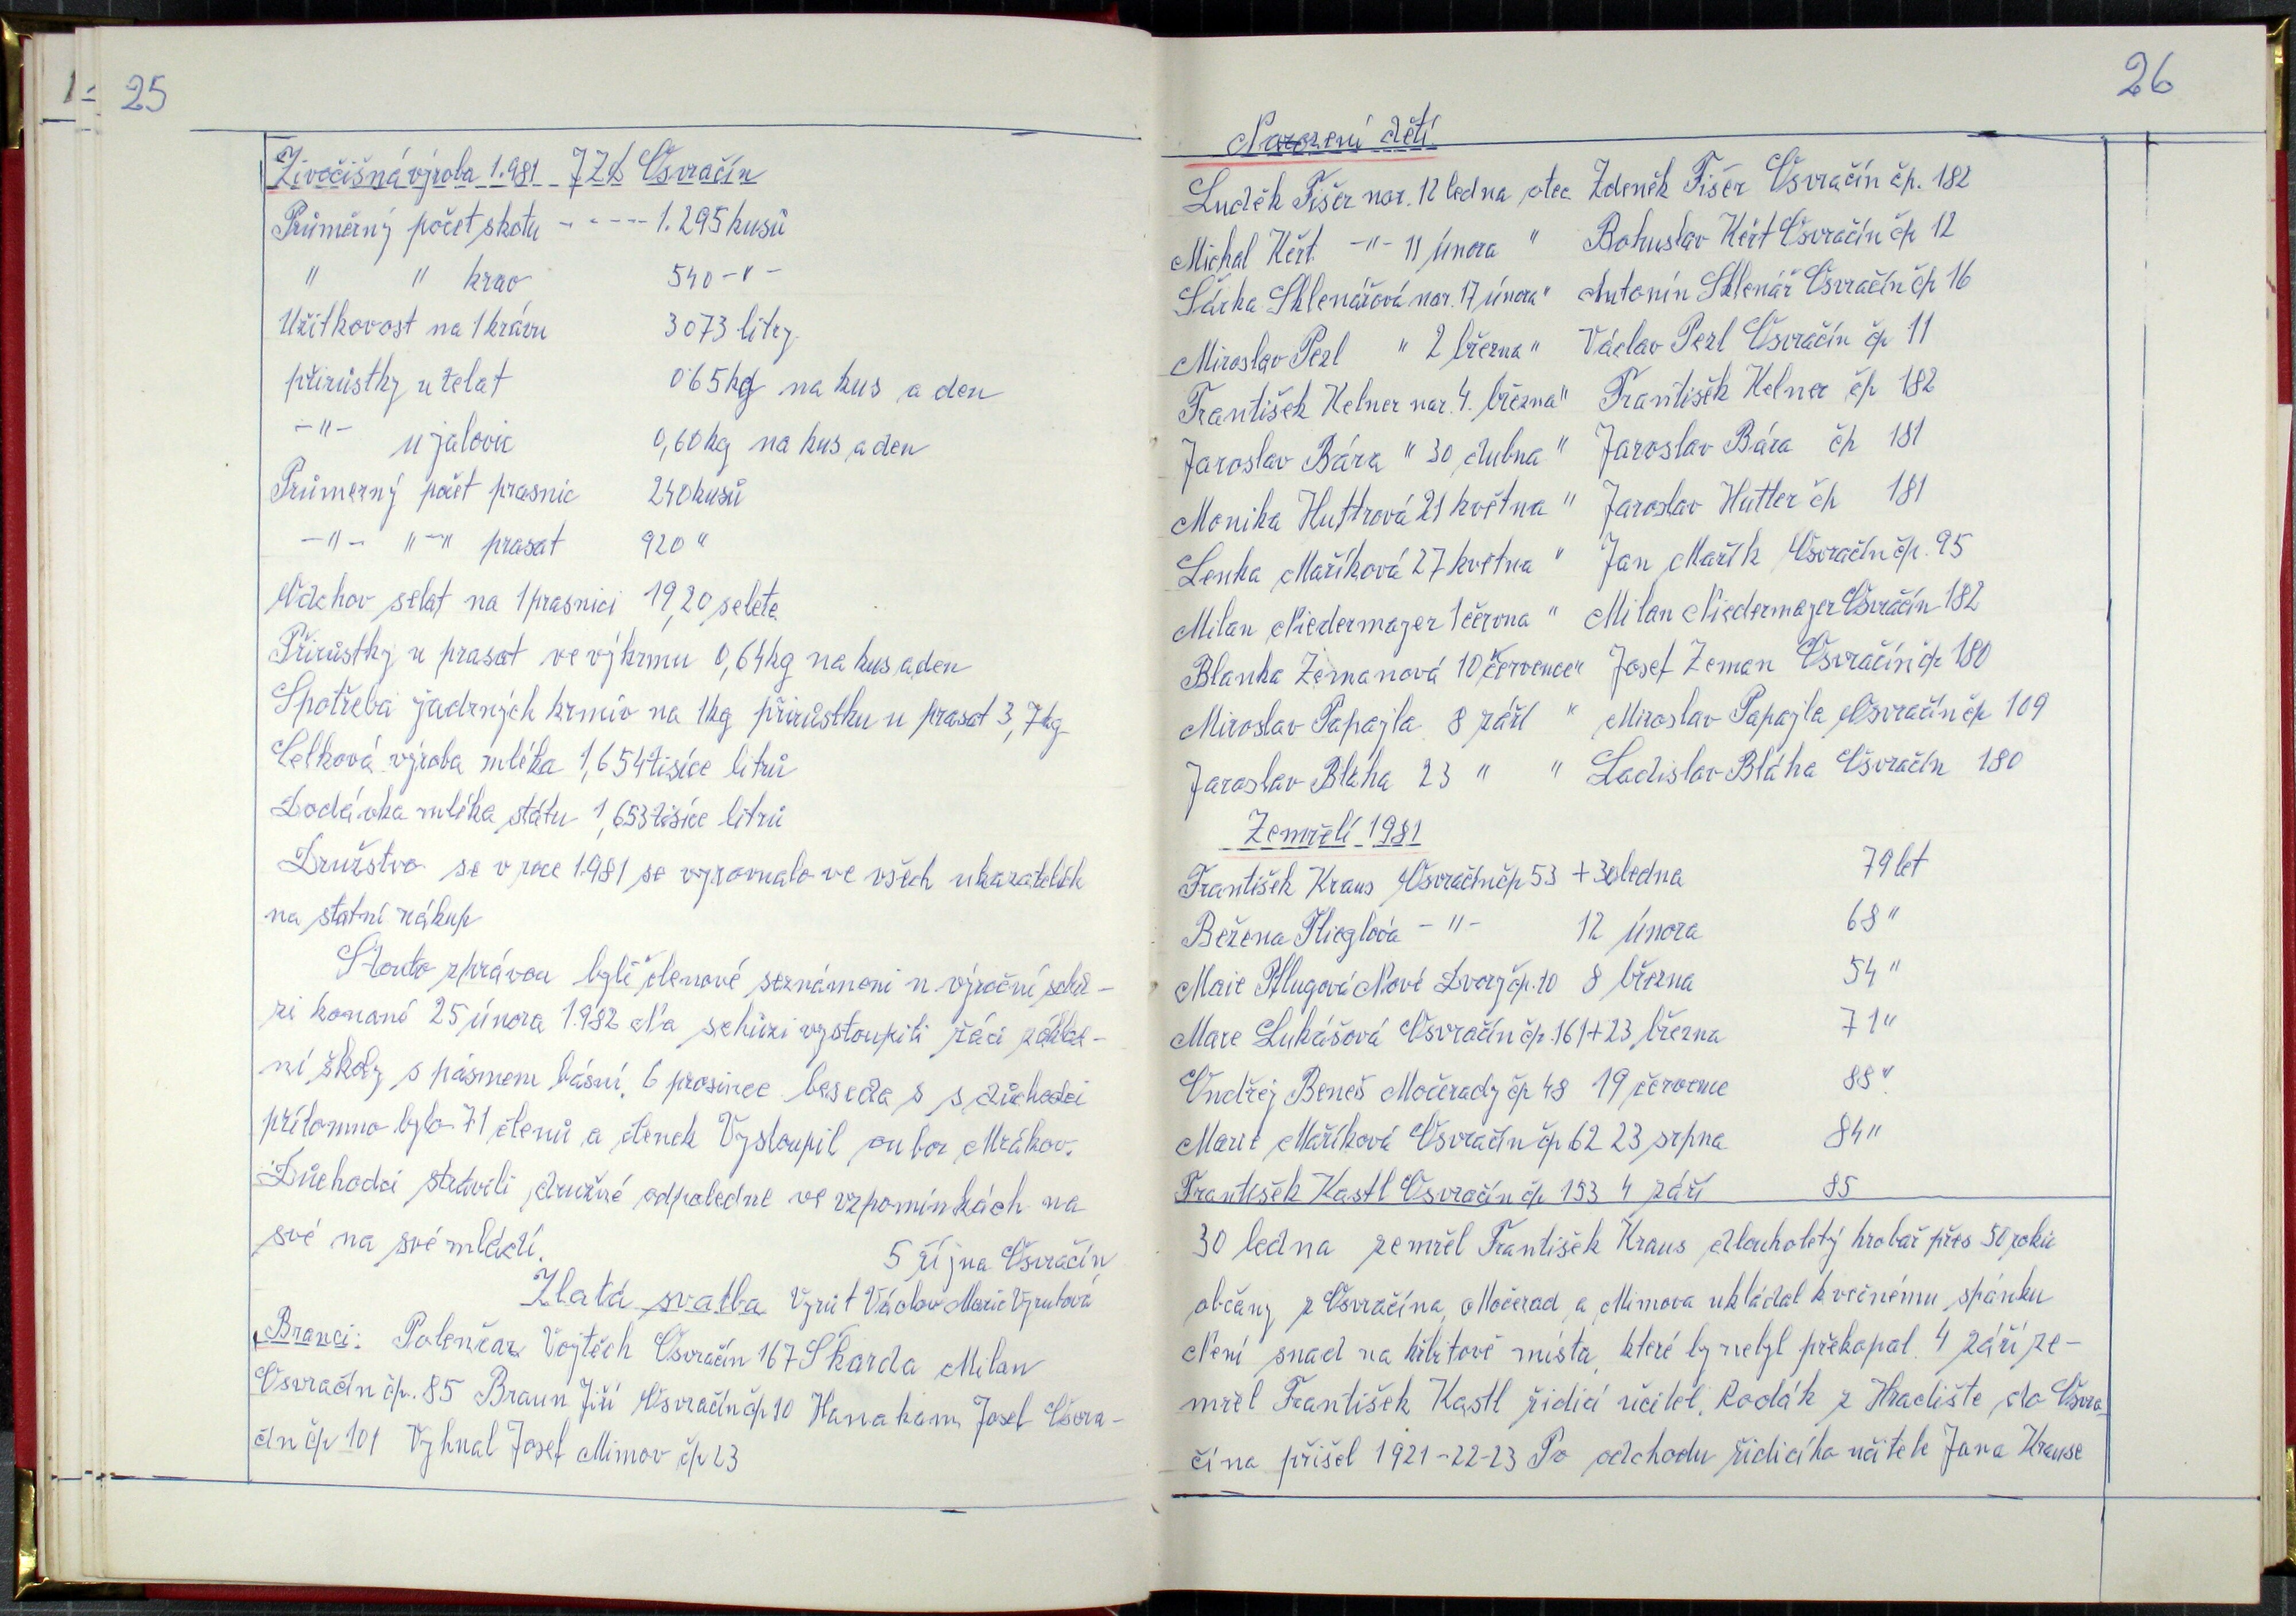 25
Živočišná výroba 1.981 JZD Osvračín
Průměrný počet skotu - - - - 1.295 kusů
" " krav 540 -"-
Užitkovost na 1 krávu 3073 litry
přírůstky u telat 065 kg na kus a den
-"- u jalovic 0,60 kg na kus a den
Průmerný počet prasnic 240 kusů
-"- "-" prasat 920 "
Odchov selat na 1 prasnici 19,20 selete
Přírůstky u prasat ve výkrmu 0,64 kg na kus a den
Spotřeba jadrných krmiv na 1 kg přírůstku u prasat 3,7 kg
Celková výroba mléka 1,654 tisíce litrů
Dodávka mléka státu 1,653 tisíce litrů
Družstvo se v roce 1.981 se vyrovnalo ve všech ukazatelích
na statní nákup
S touto zprávou byli členové seznámeni n výroční schů-
zi konané 25 února 1.982 Na schůzi vystoupili žáci základ-
ní školy s pásmem básní. 6 prosince beseda s s důchodci
přítomno bylo 71 členů a členek Vystoupil soubor Mrákov.
Důchodci strávili družné odpoledne ve vzpomínkách na
své na své mládí.
5 října Osvračín
Zlatá svatba Vyrut Václav Marie Vyrutová
Branci: Polenčar Vojtěch Osvračín 167 Skarda Milan
Osvračín čp. 85 Braun Jiří Osvračín čp 10 Hanakam Josef Osvra-
čín čp 101 Vyhnal Josef Mimov čp 23
26
Narození dětí
Luděk Fišer nar. 12 ledna otec Zdeněk Fišer Osvračín čp. 182
Michal Kért -"- 11 února " Bohuslav Kért Osvračín čp 12
Šárka Sklenářová nar. 17 února " Antonín Sklenář Osvračín čp 16
Miroslav Perl " 2 března " Václav Perl Osvračín čp 11
František Kelner nar. 4. března " František Kelner čp 182
Jaroslav Bára " 30 dubna " Jaroslav Bára čp 181
Monika Huttrová 21 května " Jaroslav Hutter čp 181
Lenka Maříková 27 května " Jan Mařík Osvračín čp. 95
Milan Niedermayer 1 června " Milan Niedermayer Osvračín 182
Blanka Zemanová 10 července " Josef Zeman Osvračín čp 180
Miroslav Papajla 8 září " Miroslav Papajla Osvračín čp 109
Jaroslav Bláha 23 " " Ladislav Bláha Osvračín 180
Zemřelí 1981
František Kraus Osvračín čp 53 + 30 ledna 79 let
Božena Flieglová -"- 12 února 68 "
Marie Pflugová Nové Dvory čp. 10 8 března 54 "
Mare Lukášová Osvračín čp. 161 + 23 března 71 "
Ondřej Beneš Močerady čp 48 19 července 88 "
Marie Maříková Osvračín čp 62 23 srpna 84 "
František Kastl Osvračín čp 153 4 září 85
30 ledna zemřel František Kraus dlouholetý hrobař přes 50 roků
občany z Osvračína, Močerad a Mimova ukládal k věčnému spánku
Není snad na hřbitově místa, které by nebyl překopal. 4 září ze-
mřel František Kastl řidící učitel. Rodák z Hradiště do Osvra-
čína přišel 1921-22-23 Po odchodu řidícího učitele Jana Krause